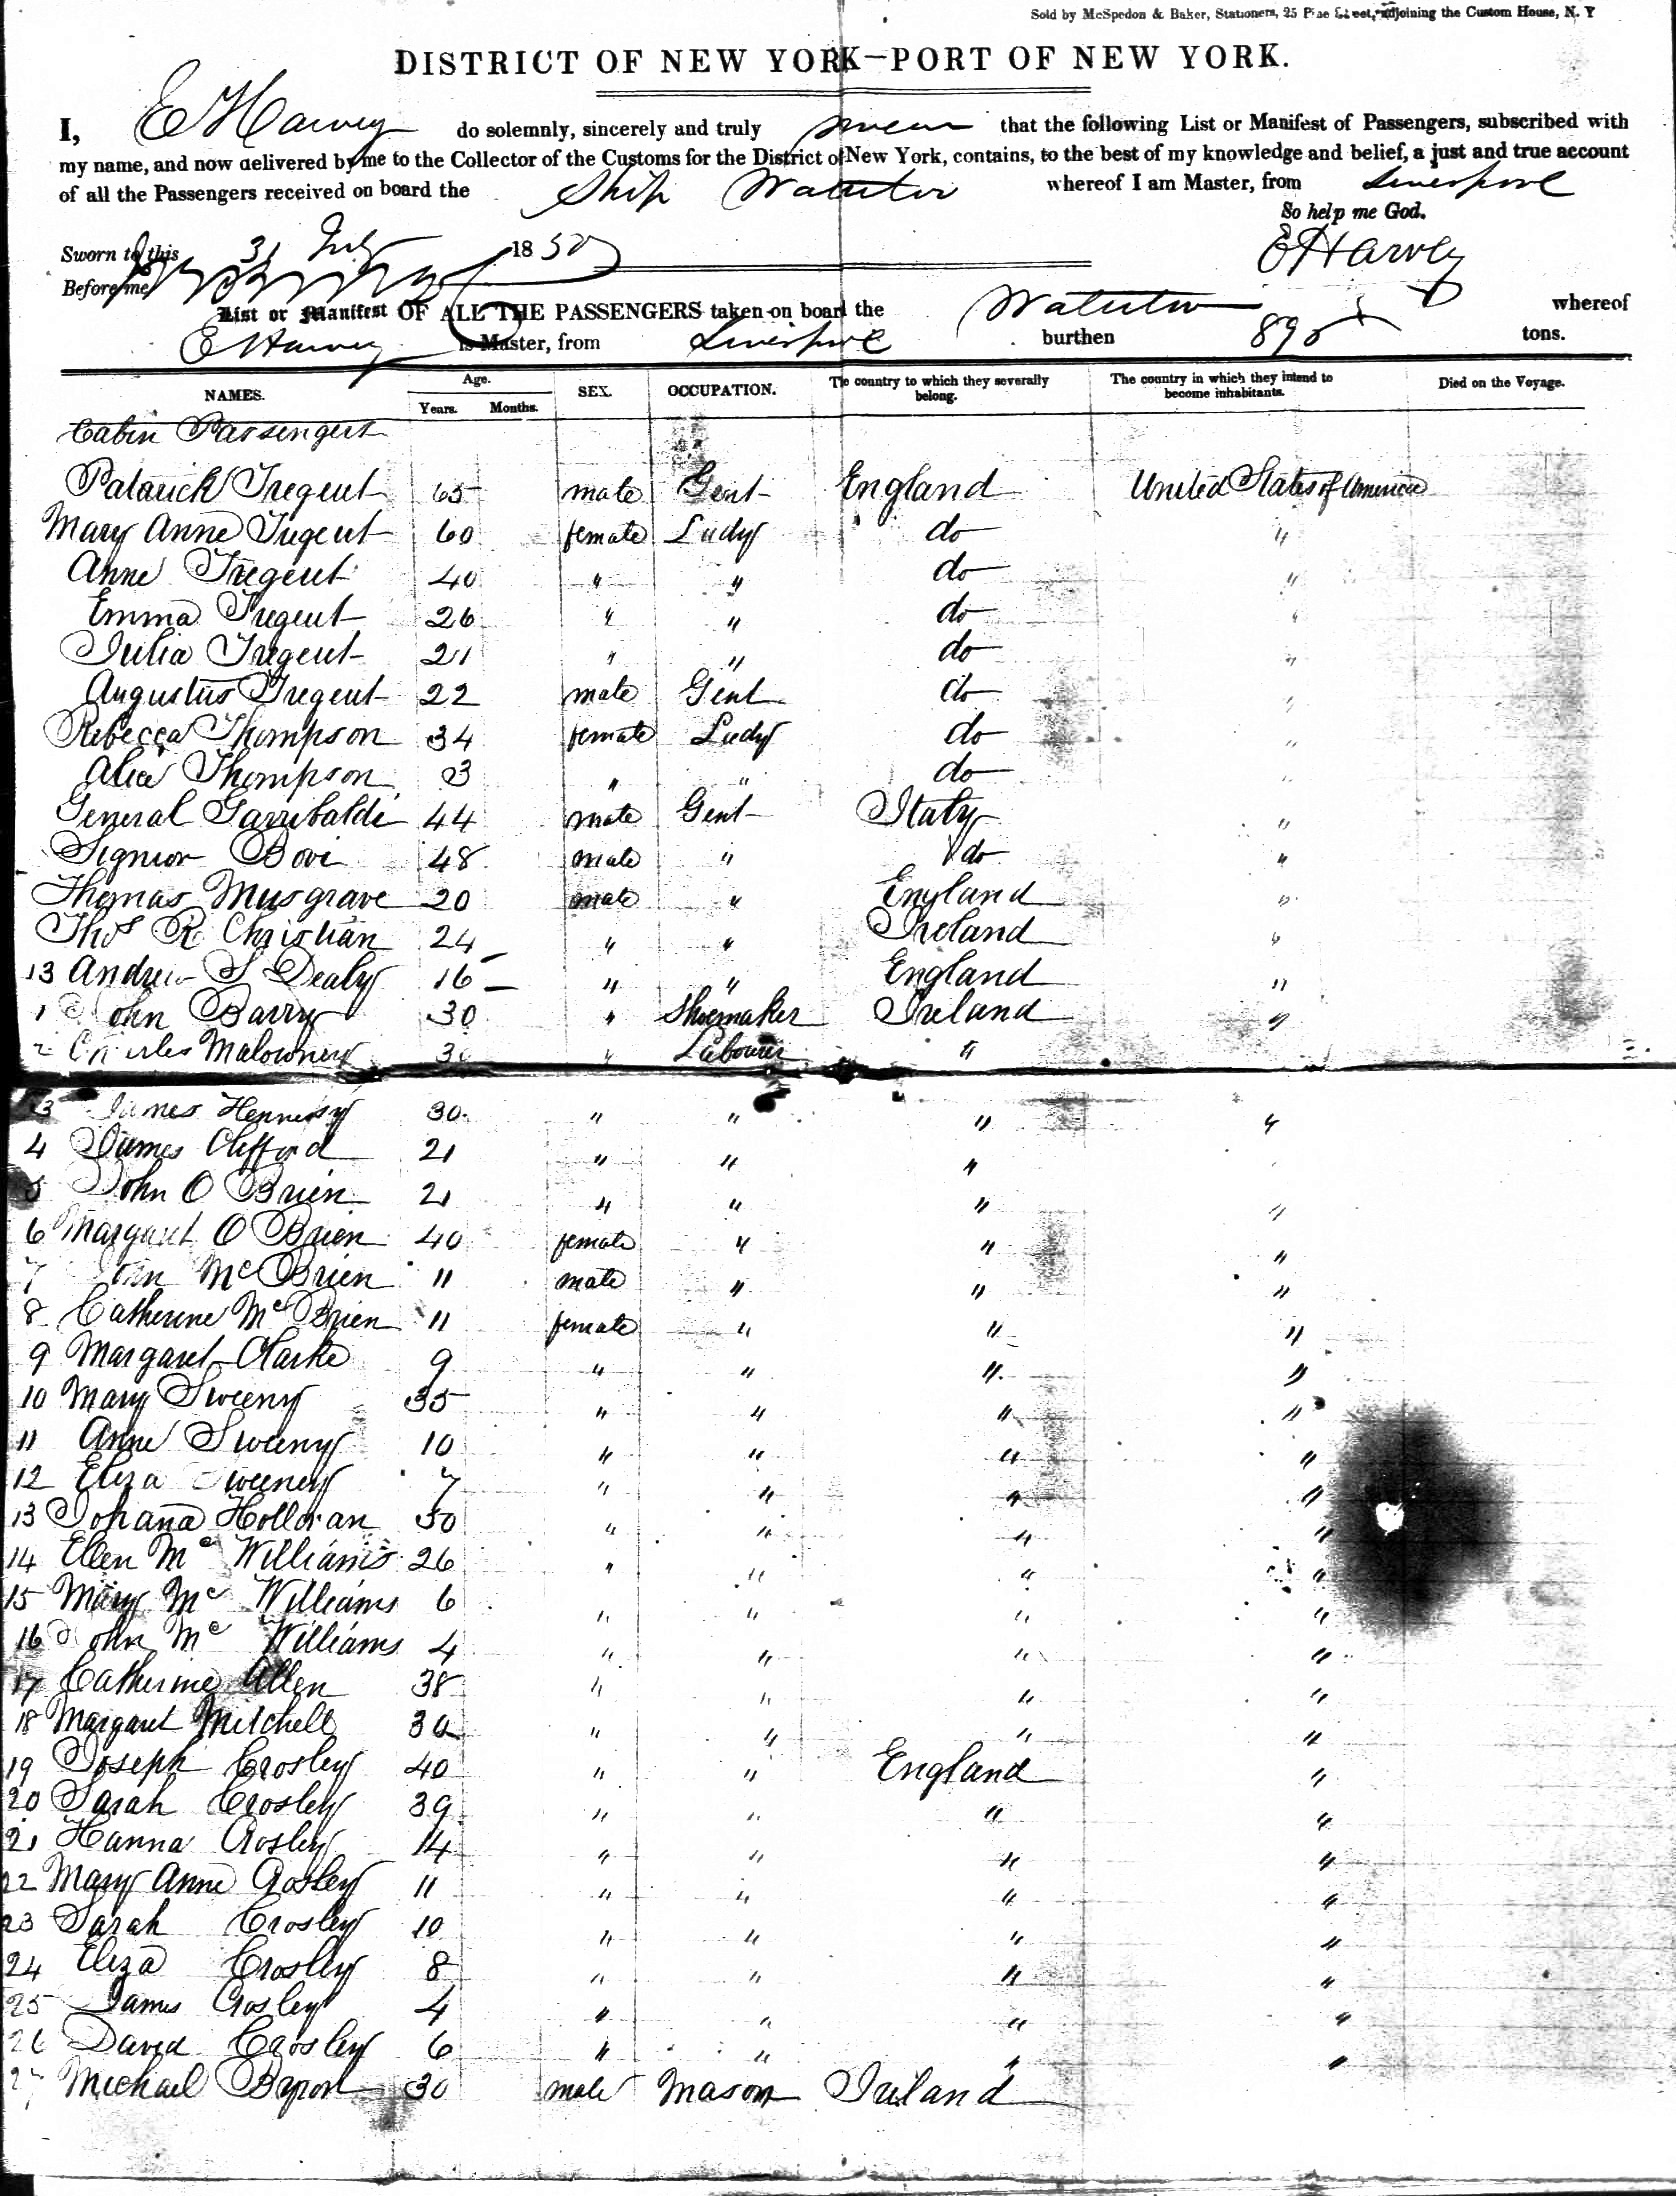 Sold by McSpedon & Baker, Stationers, 25 Pine Street, adjoining the Custom House, N. Y
DISTRICT OF NEW YORK—PORT OF NEW YORK.
I, E Harvey do solemnly, sincerely and truly swear that the following List or Manifest of Passengers, subscribed with
my name, and now delivered by me to the Collector of the Customs for the District of New York, contains, to the best of my knowledge and belief, a just and true account
of all the Passengers received on board the Ship Waterloo whereof I am Master, from Liverpool
So help me God.
Sworn to this 31 July 1850 E Harvey
Before me
List or Manifest OF ALL THE PASSENGERS taken on board the Waterloo whereof
E Harvey is Master, from Liverpool burthen 895 tons.
NAMES. Age. Years. Months. SEX. OCCUPATION. The country to which they severally belong. The country in which they intend to become inhabitants. Died on the Voyage.
Cabin Passengers
Patarick Tregent 65 male Gent England United States of America
Mary Anne Tregent 60 female Lady do "
Anne Tregent 40 " " do "
Emma Tregent 26 " " do "
Julia Tregent 21 " " do "
Augustus Tregent 22 male Gent do "
Rebecca Thompson 34 female Lady do "
Alice Thompson 3 " " do "
General Garribaldi 44 male Gent Italy "
Signior Bovi 48 male " do "
Thomas Musgrave 20 male " England "
Thos R Christian 24 " " Ireland "
13 Andrew S Dealy 16 " " England "
1 John Barry 30 " Shoemaker Ireland "
2 Charles Malowney 30 " Labourer " 
3 James Hennessy 30 " " " "
4 James Clifford 21 " " "
5 John O Brien 21 " " " "
6 Margaret O Brien 40 female " " "
7 John McBrien 11 male " " "
8 Catherine McBrien 11 female " " "
9 Margaret Clarke 9 " " " "
10 Mary Sweeny 35 " " " "
11 Anne Sweeny 10 " " " "
12 Eliza Sweeney 7 " " " "
13 Johana Holloran 50 " " " "
14 Ellen Mc Williams 26 " " " "
15 Mary Mc Williams 6 " " " "
16 John Mc Williams 4 " " " "
17 Catherine Allen 38 " " " "
18 Margaret Mitchell 30 " " " "
19 Joseph Crosley 40 " " England "
20 Sarah Crosley 39 " " " "
21 Hanna Crosley 14 " " " "
22 Mary Anne Crosley 11 " " " "
23 Sarah Crosley 10 " " " "
24 Eliza Crosley 8 " " " "
25 James Crosley 4 " " " "
26 David Crosley 6 " " " "
27 Michael Byron 30 male Mason Ireland